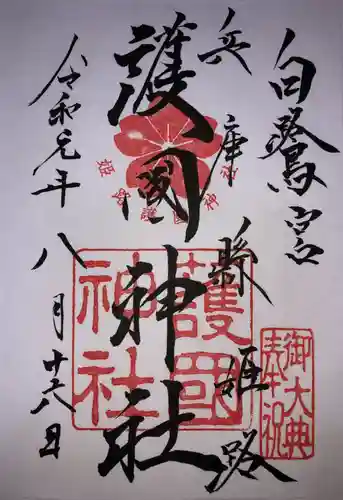 白鷺宮
兵庫縣姫路
護國神社
令和元年八月十六日
姫路護國神社
護國神社
御大典奉祝